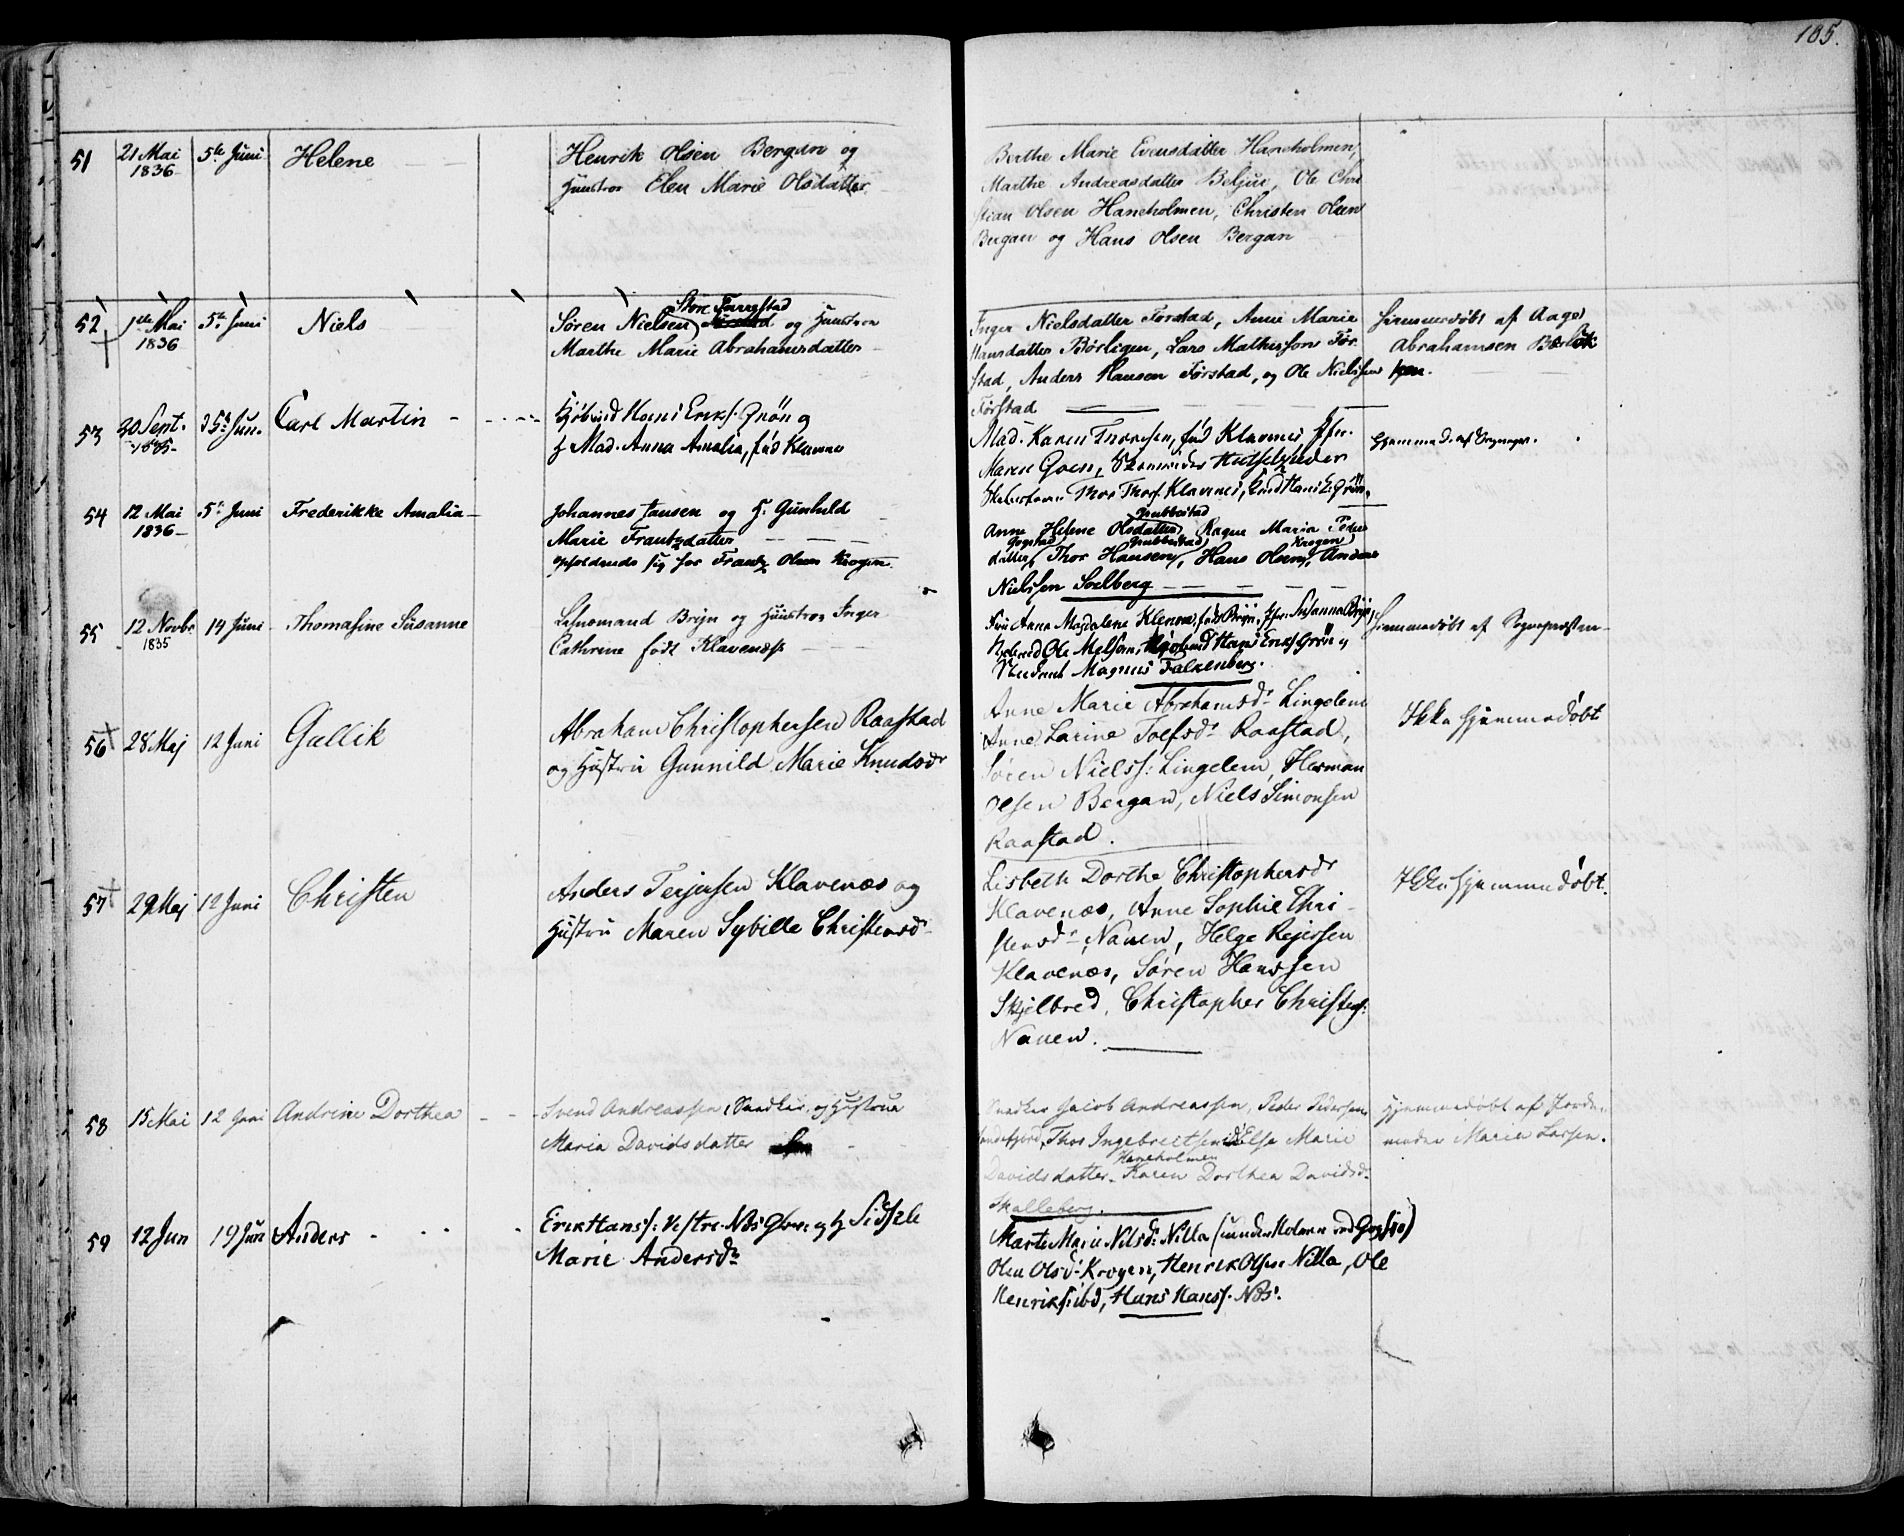 105.
51 21 Mai 1836 5te Juni Helene
Henrik Olsen Bergan og
Hunstroe Elen Marie Olsdatter
Berthe Marie Evensdatter Haneholmen,
Marthe Andreasdatter Ole Chri
stian Olsen Haneholmen, Christen Olsen
Bergan og Hans Olsen Bergan
52 1te Mai 1836 5te Juni Niels
Store Farrestad
Søren Nielsen og Hunstroe
Marthe Marie Abrahamsdatter
Inger Nielsdatter Førstad, Anne Marie
Hansdatter Børligen, Lars Mathissen Før
stad, Anders Hansen Førstad, og Ole Nielssen
Førstad
Hiemmedøbt af Aage
Abrahamsen
53 30 Sept. 1835 5te Jun. Carl Martin
Hans Eriks. Grøn og
H Mad. Anna Amalia, fød Klavenes
Mad. Karen Thoresen, fød Klavenes, Jfr.
Maren
Thor Thors. Klavenes, Hans E. Grøn.
Hjemmed. af Sognepr.
54 12 Mai 1836 5te Juni Frederikke Amalia
Johannes Jansen og H. Gunhild
Marie Frantzdatter
opholdende sig hos Frantz Olsen Krogen
Grubbestad
Anne Helene Olsdatter, Ragne Maria Peders
Gogstad Grubbestad Krogen
datter, Thor Hansen, Hans Olsen, Anders
Nielssen Soelberg
55 12 Novbr 1835 14 Juni Thomasine Susanne
Brijn og Hunstroe Inger
Cathrine født Klavenæss
Fru Anna Magdalene født Brijn, Jfr. Susanna Brijn,
Ole Melsom, Hans Eriks Grøn og
Student Magnus Falkenberg.
Hiemmedøbt af Sognepræsten
56 28 Maj 12 Juni Gullik
Abraham Christophersen Raastad
og Hustru Gunnild Marie Knudsdr
Anne Marie Abrahamsdr Lingelem
Anne Larine Tolfsdr Raastad,
Søren Nielss: Lingelem, Herman
Olsen Bergan, Niels Simonsen
Raastad.
Ikke hjemmedøbt
57 29 Maj 12 Juni Christen
Anders Terjersen Klavenæs og
Hustru Maren Sybille Christensdr
Lisbeth Dorthe Christophersdr
Klavenæs, Anne Sophie Chri-
stensdr Nauen, Helge Rejersen
Klavenæs, Søren Hanssen
Skjelbred, Christopher Christens:
Nauen.
Ikke hjemmedøbt.
58 15 Mai 12 Juni Andrine Dorthea
Svend Andreassen, Snedker, og Hustrue
Maria Davidsdatter
Snedker Jacob Andreassen, Peder Pedersen
Sandefjord, Thor Ingebreitsen Else Marie
Haneholmen
Davidsdatter. Karen Dorthea Davidsd.
Skalleberg.
Hjemmedøbt af Jorde-
moder Maria Larsen.
59 12 Jun 19 Juni Anders
Erik Hanss: Vestre-Næs og H Sidsele
Marie Andersdr
Marte Marie Nilsd: Nilla
Olea Olsd: Krogen, Henrik Olsen Nilla, Ole
Henriks: ibd, Hans Hanss. Næs.